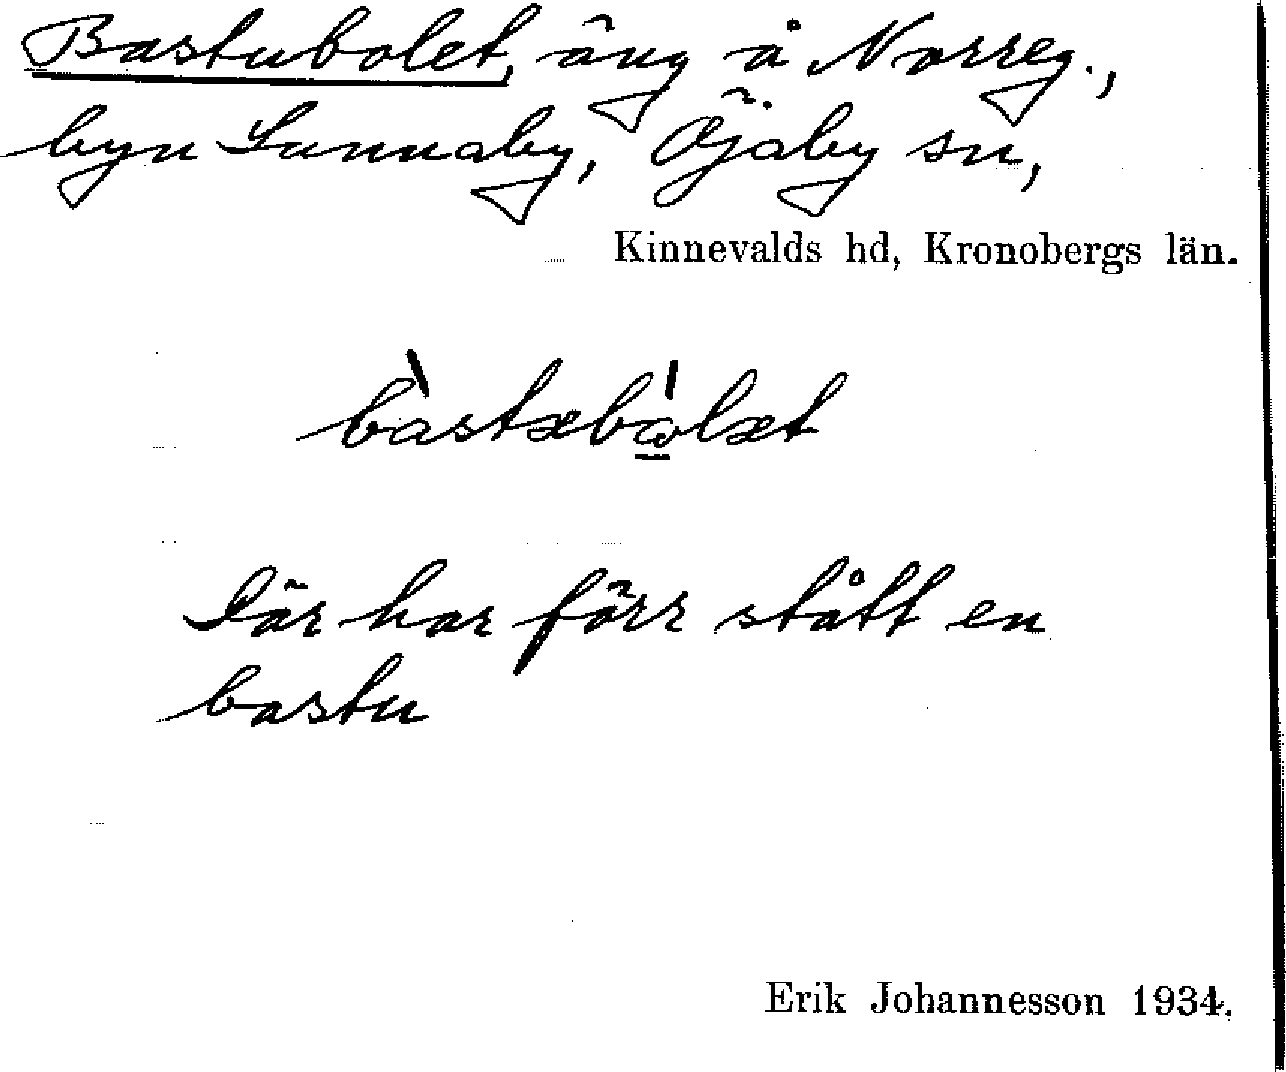 Bastubolet, äng å Norreg.,
byn Lunnaby, Öjaby sn,
Kinnevalds hd, Kronobergs län.
Där har förr stått en
bastu
Erik Johannesson 1934.